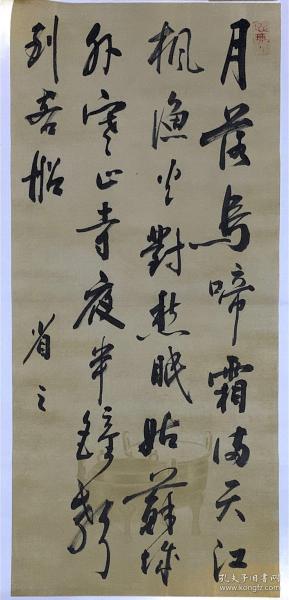 月落烏啼霜滿天江
楓漁火對愁眠姑蘇城
外寒山寺夜半鐘聲
到客船
省之
孔夫子旧书网